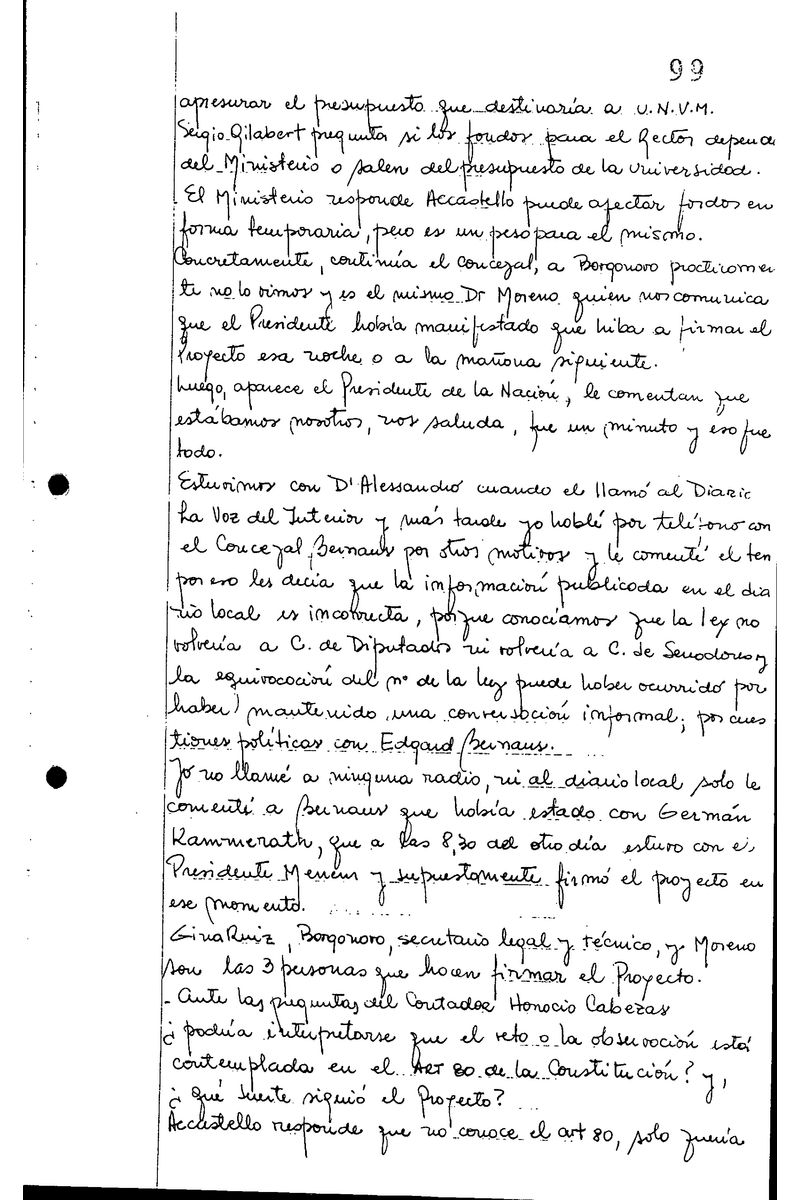 99
apresurar el presupuesto que destinaría a U.N.V.M.
Sergio Gilabert pregunta si los fondos para el Rector depende
del Ministerio o salen del presupuesto de la Universidad.
El Ministerio responde Accastello puede afectar fondos en
forma temporaria, pero es un peso para el mismo.
Concretamente, continúa el concejal, a Borgonovo practicamen
te no lo vimos y es el mismo Dr Moreno quien nos comunica
que el Presidente había manifestado que hiba a firmar el
Proyecto esa noche o a la mañana siguiente.
Luego, aparece el Presidente de la Nación, le comentan que
estábamos nosotros, nos saluda, fue un minuto y eso fue
todo.
Estuvimos con D'Alessandro cuando el llamó al Diario
La Voz del Interior y más tarde yo hablé por teléfono con
el Concejal Bernaus por otros motivos y le comenté el tem
por eso les decía que la información publicada en el dia
rio local es incorrecta, porque conocíamos que la ley no
volvería a C. de Diputados ni volvería a C. de Senadores y
la equivocación del nº de la ley puede haber ocurrido por
haber) mantenido una conversación informal; por cues
tiones políticas con Edgard Bernaus.
Yo no llamé a ninguna radio, ni al diario local solo le
comenté a Bernaus que había estado con Germán
Kammerath, que a las 8,30 del otro día estuvo con el
Presidente Menem y supuestamente firmó el proyecto en
ese momento.
Gina Ruiz, Borgonovo, secretario legal y técnico, y Moreno
son las 3 personas que hacen firmar el Proyecto.
- Ante las preguntas del Contador Horacio Cabezas
¿podría interpretarse que el veto o la observación está
contemplada en el ART 80 de la Constitución? y,
¿qué suerte siguió el Proyecto?
Accastello responde que no conoce el art 80, solo quería